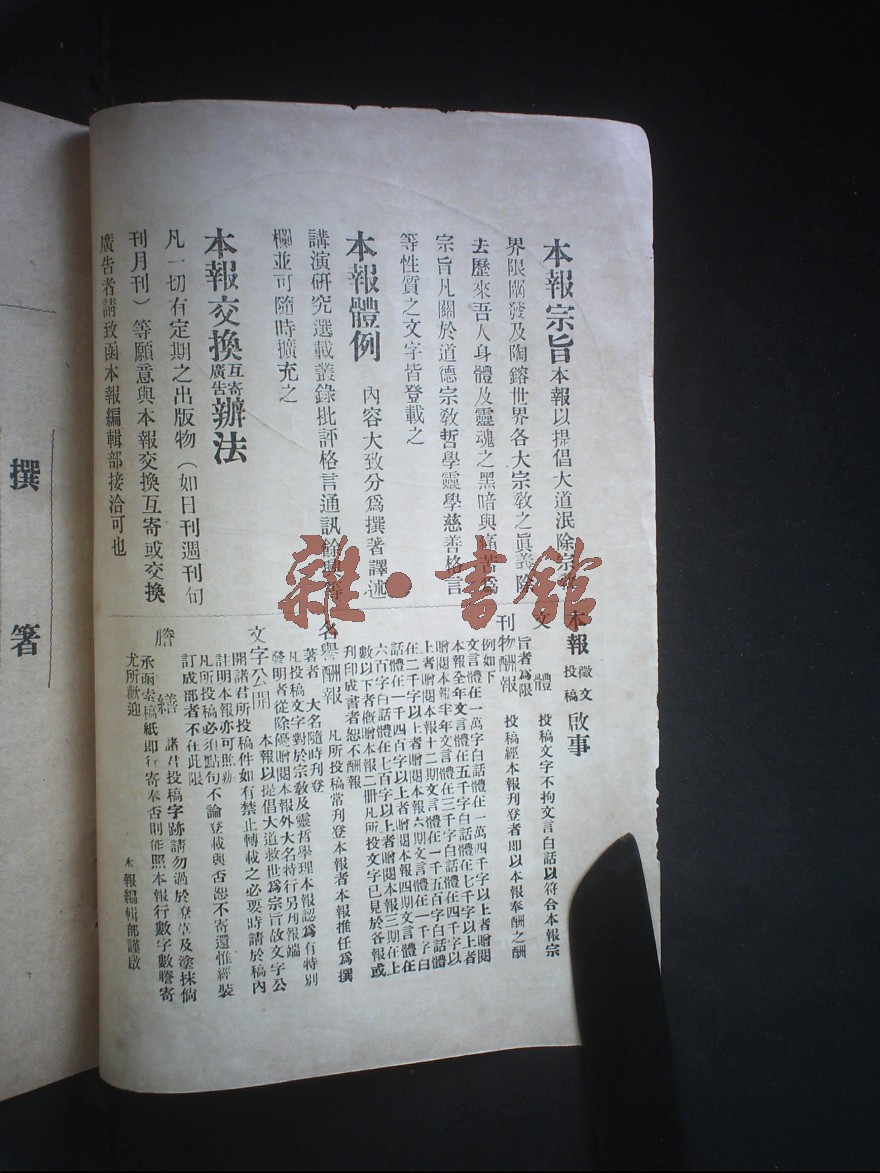 本報宗旨 本報以提倡大道泯除宗教
界限闡發及陶鎔世界各大宗教之眞義除
去歷來吾人身體及靈魂之黑暗與痛苦爲
宗旨凡關於道德宗教哲學靈學慈善格言
等性質之文字皆登載之
本報體例 內容大致分爲撰著譯述
講演硏究選載叢錄批評格言通訊餘興等
欄並可隨時擴充之
本報交換互寄廣告辦法
凡一切有定期之出版物（如日刊週刊旬
刊月刊）等願意與本報交換互寄或交換
廣告者請致函本報編輯部接洽可也
本報徵文投稿啟事
文體 投稿文字不拘文言白話以符合本報宗
旨者爲限
刊物酬報 投稿經本報刊登者即以本報奉酬之酬
例如下
文言體在一萬字白話體在一萬四千字以上者贈閱
本報全年文言體在五千字白話體在七千字以上者
贈閱本報半年文言體在三千字白話體在四千字以
上者贈閱本報十二期文言體在一千五百字白話體
在二千字以上者贈閱本報六期文言體在一千字白
話體在一千四百字以上者贈閱本報四期文言體在
六百字白話體在七百字以上者贈閱本報三期在上
數以下者概贈本報二冊凡所投文字已見於各報或
刊印成書者恕不酬報
名譽酬報 凡所投稿常刊登本報者本報推任爲撰
著者 大名隨時刊登
凡投稿文字對於宗教及靈哲學理本報認爲有特別
發明者從除優贈閱本報外大名特行另刊報端
文字公開 本報以提倡大道救世爲宗旨故文字公
開諸君所投稿件如有禁止轉載之必要時請於稿內
註明本報亦可照辦
凡所投稿必須點句不論登載與否恕不寄還惟經裝
訂成部者不在此限
謄繕 諸君投稿字跡請勿過於潦草及塗抹倘
承函索稿紙即行寄奉否則能照本報行數字數謄寄
尤所歡迎
本報編輯部謹啟
撰 箸
雜·書館